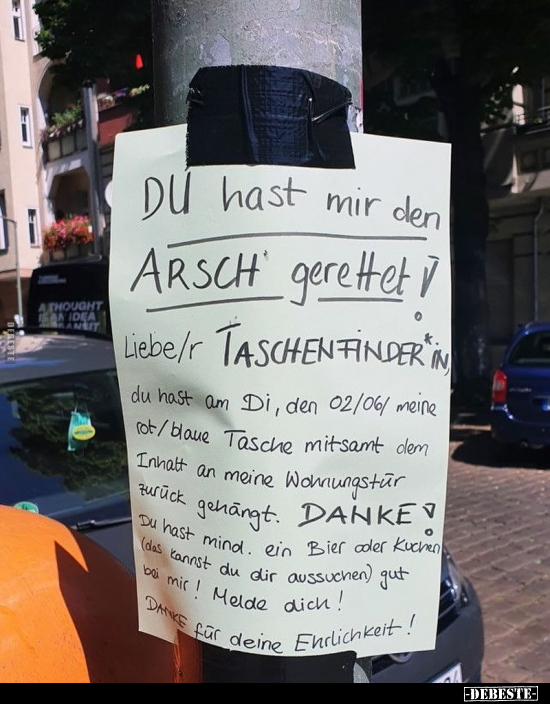 DU hast mir den
ARSCH gerettet!
Liebe/r TASCHENFINDER*IN,
du hast am Di, den 02/06/ meine
rot/blaue Tasche mitsamt dem
Inhalt an meine Wohnungstür
zurück gehängt. DANKE!
Du hast mind. ein Bier oder Kuchen
(das kannst du dir aussuchen) gut
bei mir! Melde dich!
DANKE für deine Ehrlichkeit!
A THOUGHT
IS AN IDEA
-DEBESTE-